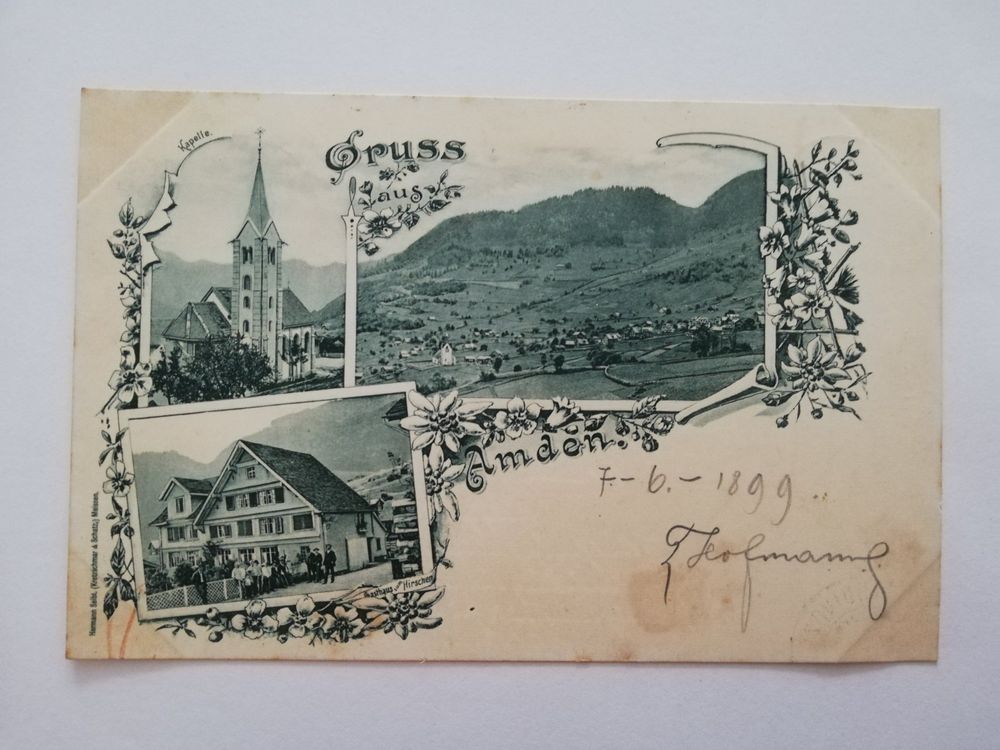 Kapelle.
Gruss
aus
Amden.
7-6.-1899.
Hofmann
Gasthaus zum Hirschen
Hermann Seibt, (Kretzschmar & Schatz,) Meissen.